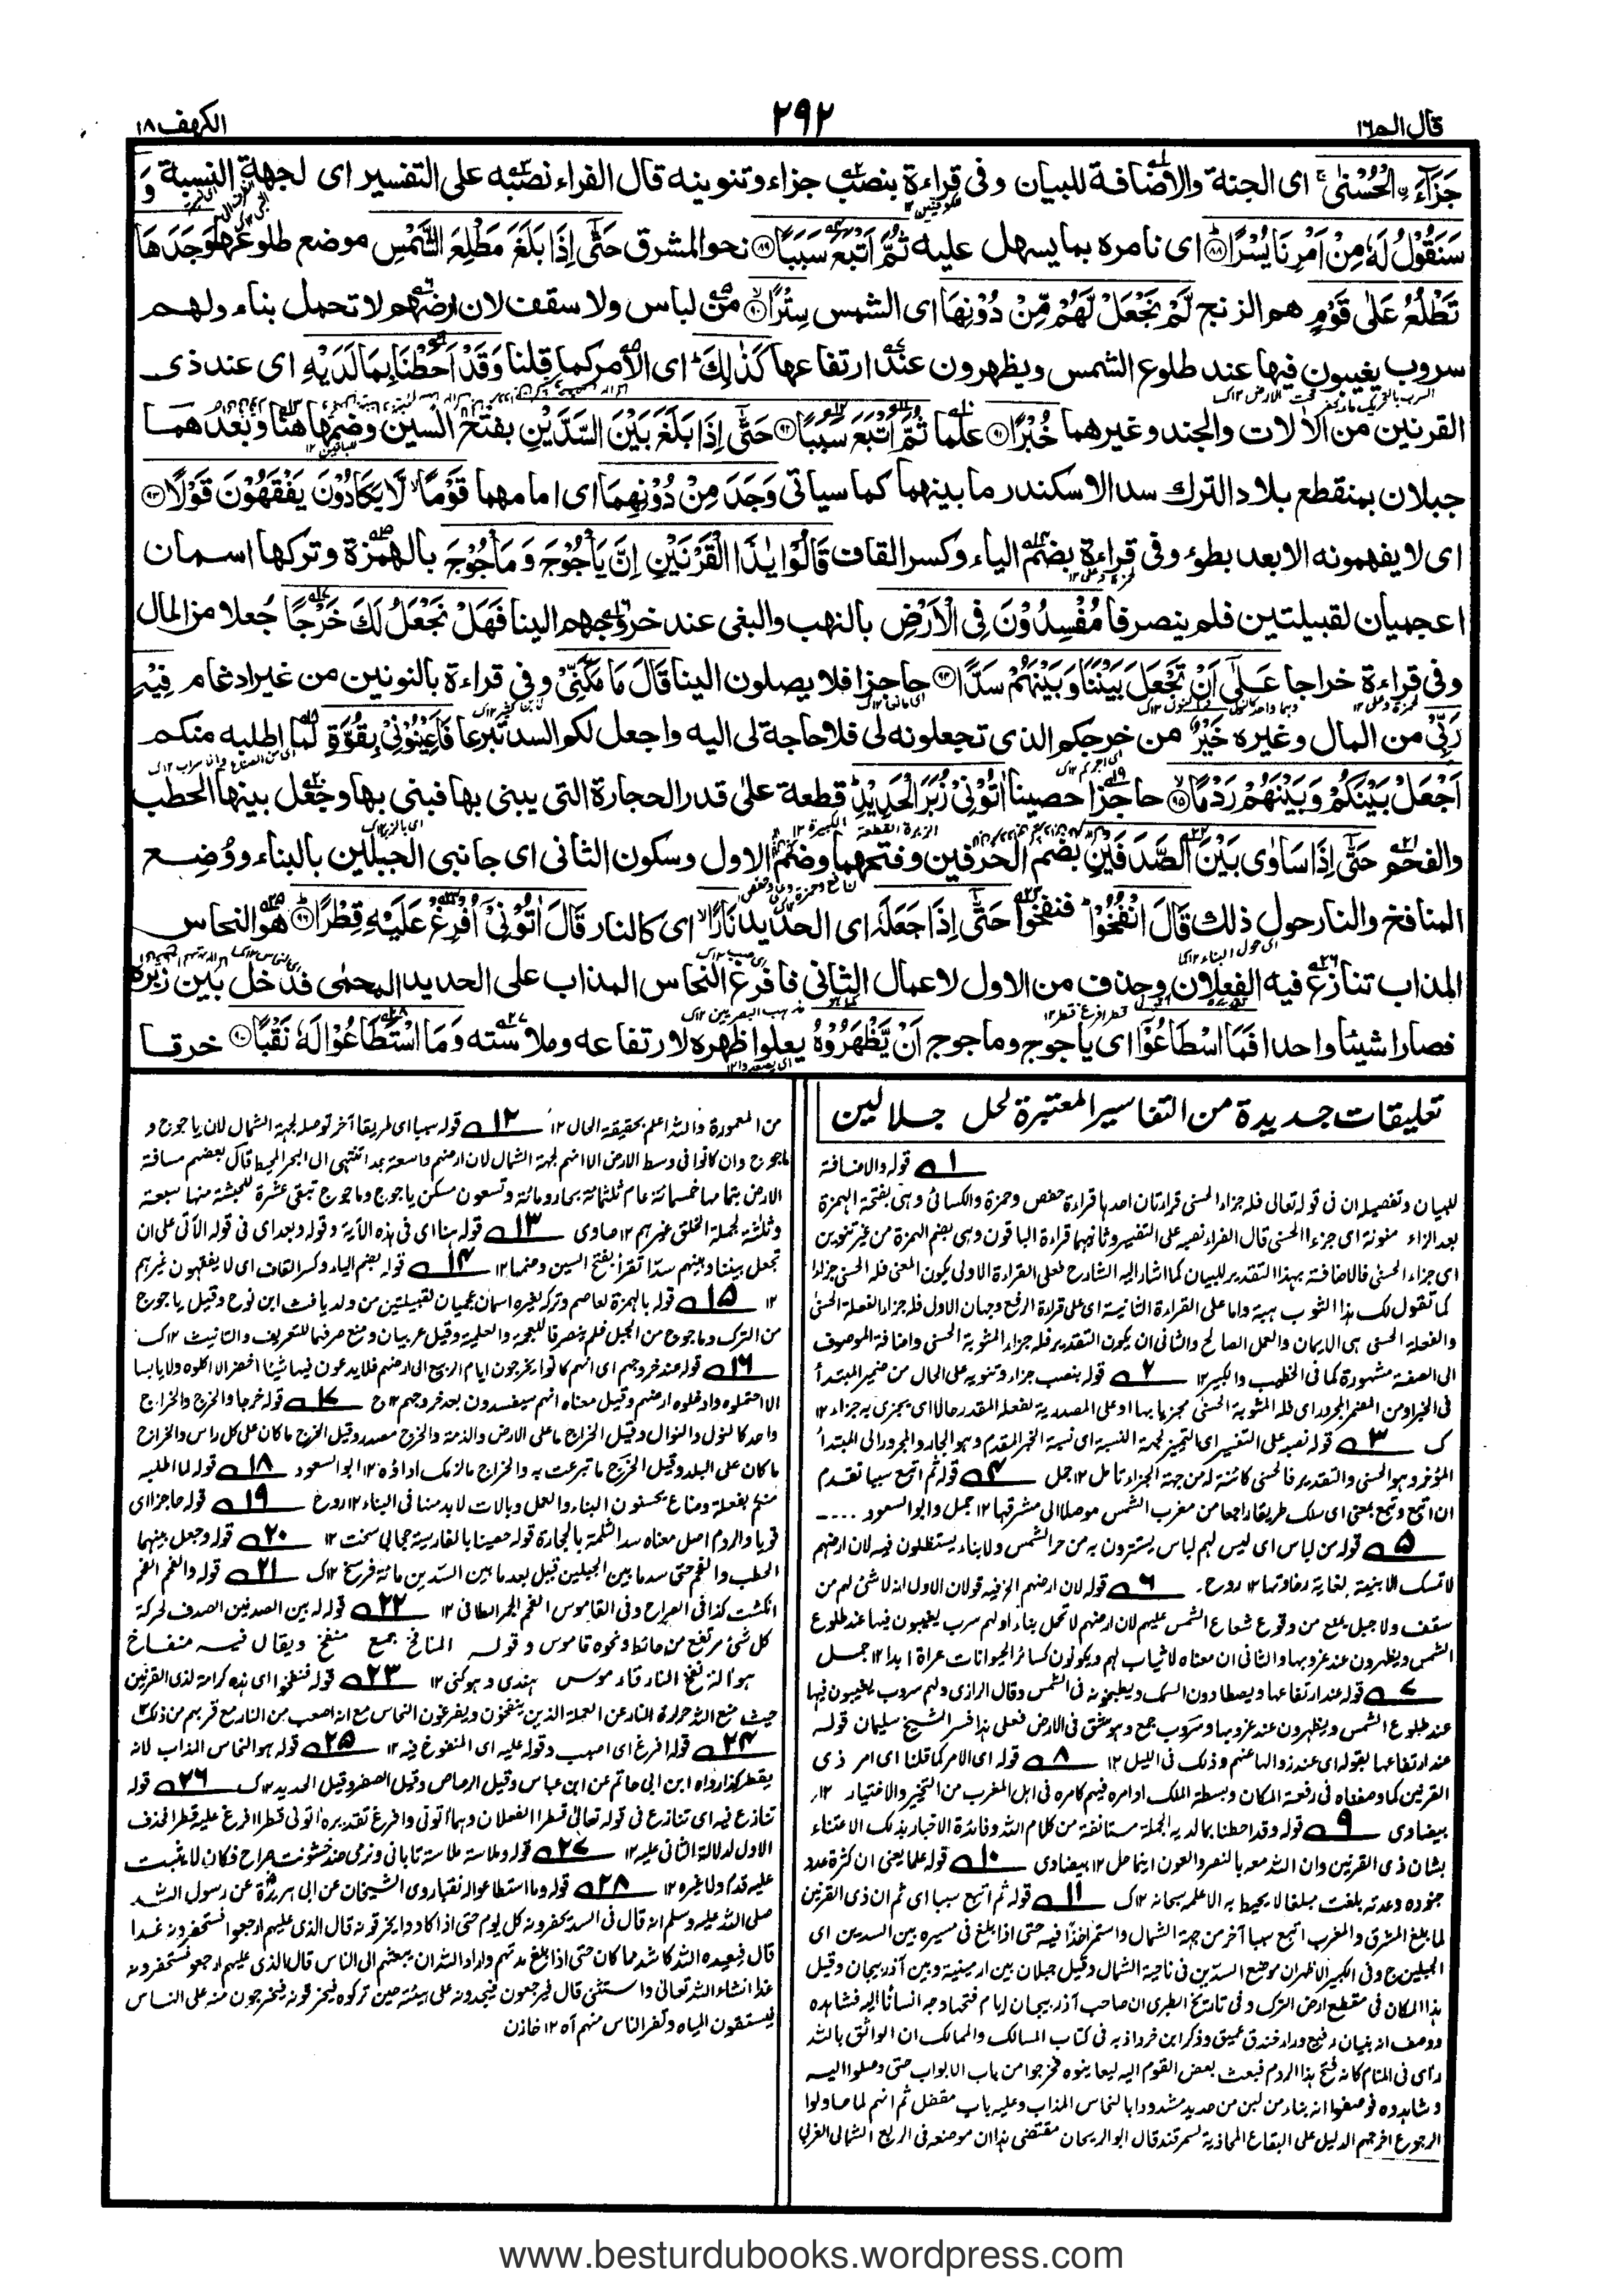 قال الم١٦
٢٩٢
الكهف ١٨
جَزَآءَ ۨالْحُسْنٰى ۚ اى الجنة والاضافة للبيان وفى قراءة بنصب جزاء وتنوينه قال الفراء نصبه على التفسير اى لجهة النسبة وَ
سَنَقُوْلُ لَهٗ مِنْ اَمْرِنَا يُسْرًا ۝٨٨ اى نامره بما يسهل عليه ثُمَّ اَتْبَعَ سَبَبًا ۝٨٩ نحو المشرق حَتّٰٓى اِذَا بَلَغَ مَطْلِعَ الشَّمْسِ موضع طلوعها وَجَدَهَا
تَطْلُعُ عَلٰى قَوْمٍ هم الزنج لَّمْ نَجْعَلْ لَّهُمْ مِّنْ دُوْنِهَا اى الشمس سِتْرًا ۝٩٠ من لباس ولا سقف لان ارضهم لا تحمل بناء ولهم
سروب يغيبون فيها عند طلوع الشمس ويظهرون عند ارتفاعها كَذٰلِكَ ؕ اى الامر كما قلنا وَقَدْ اَحَطْنَا بِمَا لَدَيْهِ اى عند ذى
القرنين من الالات والجند وغيرهما خُبْرًا ۝٩١ علما ثُمَّ اَتْبَعَ سَبَبًا ۝٩٢ حَتّٰٓى اِذَا بَلَغَ بَيْنَ السَّدَّيْنِ بفتح السين وضمها هنا وبعد هما
جبلان بمنقطع بلاد الترك سد الاسكندر ما بينهما كما سياتى وَجَدَ مِنْ دُوْنِهِمَا اى امامهما قَوْمًا ۙ لَّا يَكَادُوْنَ يَفْقَهُوْنَ قَوْلًا ۝٩٣
اى لا يفهمونه الا بعد بطوء وفى قراءة بضم الياء وكسر القاف قَالُوْا يٰذَا الْقَرْنَيْنِ اِنَّ يَاْجُوْجَ وَ مَاْجُوْجَ بالهمزة وتركها اسمان
اعجميان لقبيلتين فلم ينصرفا مُفْسِدُوْنَ فِى الْاَرْضِ بالنهب والبغى عند خروجهم الينا فَهَلْ نَجْعَلُ لَكَ خَرْجًا جُعلا من المال
وفى قراءة خراجا عَلٰٓى اَنْ تَجْعَلَ بَيْنَنَا وَبَيْنَهُمْ سَدًّا ۝٩٤ حاجزا فلا يصلون الينا قَالَ مَا مَكَّنِّىْ وفى قراءة بالنونين من غير ادغام فِيْهِ
رَبِّىْ من المال وغيره خَيْرٌ من خرجكم الذى تجعلونه لى فلا حاجة لى اليه واجعل لكم السد تبرعا فَاَعِيْنُوْنِىْ بِقُوَّةٍ لما اطلبه منكم
اَجْعَلْ بَيْنَكُمْ وَبَيْنَهُمْ رَدْمًا ۝٩٥ حاجزا حصينا اٰتُوْنِىْ زُبَرَ الْحَدِيْدِ ؕ قطعة على قدر الحجارة التى يبنى بها فبنى بها وجعل بينها الحطب
والفحم حَتّٰٓى اِذَا سَاوٰى بَيْنَ الصَّدَفَيْنِ بضم الحرفين وفتحهما وضم الاول وسكون الثانى اى جانبى الجبلين بالبناء ووُضِع
المنافخ والنار حول ذلك قَالَ انْفُخُوْا ؕ فنفخوا حَتّٰٓى اِذَا جَعَلَهٗ اى الحديد نَارًا ۙ اى كالنار قَالَ اٰتُوْنِىْٓ اُفْرِغْ عَلَيْهِ قِطْرًا ۝٩٦ هو النحاس
المذاب تنازع فيه الفعلان وحذف من الاول لاعمال الثانى فافرغ النحاس المذاب على الحديد المحمٰى فدخل بين زبره
فصارا شيئا واحدا فَمَا اسْطَاعُوْٓا اى ياجوج وماجوج اَنْ يَّظْهَرُوْهُ يعلوا ظهره لارتفاعه وملاسته وَمَا اسْتَطَاعُوْا لَهٗ نَقْبًا ۝ خرقا
تعليقات جديدة من التفاسير المعتبرة لحل جلالين
١ قوله والاضافة
للبيان وتفصيله ان فى قوله تعالى فله جزاء الحسنى قراءتان احدها قراءة حفص وحمزة والكسائى وهى بفتحة الهمزة
بعد الزاء منونة اى جزاءا الحسنى قال الفراء نصبه على التفسير وثانيهما قراءة الباقون وهى بضم الهمزة من غير تنوين
اى جزاء الحسنى فالاضافة بهذا التقدير للبيان كما اشار اليه الشارح فعلى القراءة الاولى يكون المعنى فله الحسنى جزاء
كما تقول لك هذا الثوب هبة واما على القراءة الثانية اى على قراءة الرفع وجهان الاول فله جزاء الفعلة الحسنى
والفعلة الحسنى هى الايمان والعمل الصالح والثانى ان يكون التقدير فله جزاء المثوبة الحسنى واضافة الموصوف
الى الصفة مشهورة كما فى الخطيب والكبير ١٢ ٢ قوله بنصب جزاء وتنوينه على الحال من ضمير المبتدأ
ك ٣ قوله نصبه على التفسير اى التمييز لجهة النسبة اى نسبة الخبر المقدم وهو الجار والمجرور الى المبتدأ
المؤخر وهو الحسنى والتقدير فالحسنى كائنة له من جهة الجزاء تامل ١٢ جمل ٤ قوله ثم اتبع سببا تقدم
ان اتبع وتبع بمعنى اى سلك طريقا راجعا من مغرب الشمس موصلا الى مشرقها ١٢ جمل وابو السعود
٥ قوله من لباس اى ليس لهم لباس يستترون به من حر الشمس ولا بناء يستظلون فيه لان ارضهم
لا تمسك الابنية لغاية رخاوتها ١٢ روح ٦ قوله لان ارضهم الخ فيه قولان الاول انه لا شئ لهم من
سقف ولا جبل يمنع من وقوع شعاع الشمس عليهم لان ارضهم لا تحمل بناء ولهم سرب يغيبون فيها عند طلوع
الشمس ويظهرون عند غروبها والثانى ان معناه لا ثياب لهم ويكونون كسائر الحيوانات عراة ابدا ١٢ جمل
٧ قوله عند ارتفاعها ويصطادون السمك ويطبخونه فى الشمس وقال الرازى ولهم سروب يغيبون فيها
عند طلوع الشمس ويظهرون عند غروبها وسروب جمع وهو شق فى الارض فعلى هذا فسر الشيخ سليمان قوله
عند ارتفاعها بقوله اى عند زوالها عنهم وذلك فى الليل ١٢ ٨ قوله اى الامر كما قلنا اى امر ذى
القرنين كما وصفناه فى رفعة المكان وبسطة الملك او امره فيهم كامره فى اهل المغرب من التخيير والاختيار ١٢
بيضاوى ٩ قوله وقد احطنا بما لديه الجملة مستانفة من كلام الله وفائدة الاخبار بذلك الاعتناء
بشان ذى القرنين وان الله معه بالنصر والعون اينما حل ١٢ بيضاوى ١٠ قوله علما يعنى ان كثرة عدد
جنوده وعدته بلغت مبلغا لا يحيط به الا علمه سبحانه ١٢ك ١١ قوله ثم اتبع سببا اى ثم ان ذى القرنين
لما بلغ المشرق والمغرب اتبع سببا آخر من جهة الشمال واستمر اخذا فيه حتى اذا بلغ فى مسيره بين السدين اى
الجبلين ج وفى الكبير الاظهر ان موضع السدين فى ناحية الشمال وقيل جبلان بين ارمينية وبين آذربيجان وقيل
هذا المكان فى مقطع ارض الترك وفى تاريخ الطبرى ان صاحب آذربيجان ايام فتحها وجه انسانا اليه فشاهده
ووصف انه بنيان رفيع وراء خندق عميق وذكر ابن خرداذبه فى كتاب المسالك والممالك ان الواثق بالله
رأى فى المنام كانه فتح هذا الردم فبعث بعض القوم اليه ليعاينوه فخرجوا من باب الابواب حتى وصلوا اليه
وشاهدوه فوصفوا انه بناء من لبن من حديد مشدودا بالنحاس المذاب وعليه باب مقفل ثم انهم لما حاولوا
الرجوع اخرجهم الدليل على البقاع المحاذية لسمرقند قال ابو الريحان مقتضى هذا ان موضعه فى الربع الشمالى الغربى
من المعمورة والله اعلم بحقيقة الحال ١٢ ١٢ قوله سببا اى طريقا آخر توصله لجهة الشمال لان ياجوج و
ماجوج وان كانوا فى وسط الارض الا انهم لجهة الشمال لان ارضهم واسعة جدا تنتهى الى البحر المحيط قال بعضهم مسافة
الارض بتمامها خمسمائة عام ثلثمائة بحار ومائة وتسعون مسكن ياجوج وماجوج تبقى عشرة للحبشة منها سبعة
وثلثة لجملة الخلق غيرهم ١٢ صاوى ١٣ قوله هنا اى فى هذه الآية وقوله وبعد اى فى قوله الآتى على ان
تجعل بيننا وبينهم سدا تقرأ بفتح السين وضمها ١٢ ١٤ قوله بضم الياء وكسر القاف اى لا يفقهون غيرهم
١٢ ١٥ قوله بالهمزة لعاصم وتركه لغيره اسمان عجميان لقبيلتين من ولد يافث ابن نوح وقيل ياجوج
من الترك وماجوج من الجبل فلم ينصرفا للعجمة والعلمية وقيل عربيان ومنع صرفهما للتعريف والتانيث ١٢ك
١٦ قوله عند خروجهم اى انهم كانوا يخرجون ايام الربيع الى ارضهم فلا يدعون فيها شيئا اخضر الا اكلوه ولا يابسا
الا احتملوه وادخلوه ارضهم وقيل معناه انهم سيفسدون بعد خروجهم ١٢ ج ١٧ قوله خرجا والخرج والخراج
واحد كالنول والنوال وقيل الخراج ما على الارض والذمة والخرج مصدر وقيل الخرج ما كان على كل راس والخراج
ما كان على البلد وقيل الخرج ما تبرعت به والخراج ما لزمك اداؤه ١٢ ابو السعود ١٨ قوله لما اطلبه
منكم بفعلة وصناع يحسنون البناء والعمل وبالات لابد منها فى البناء ١٢ روح ١٩ قوله حاجزا اى
قويا والردم اصل معناه سد الثلمة بالحجارة قوله حصينا بالفارسية ججابى سخت ١٢ ٢٠ قوله وجعل بينهما
الحطب والفحم حتى سد ما بين الجبلين قيل بعد ما بين السدين مائة فرسخ ١٢ك ٢١ قوله والفحم الفحم
انكشت كذا فى الصراح وفى القاموس الفحم الجمر الطافى ١٢ ٢٢ قوله بين الصدفين الصدف لحركة
كل شئ مرتفع من حائط ونحوه قاموس وقوله المنافخ جمع منفخ ويقال فيه منفاخ
هو آلة نفخ النار قاموس ١٢ ٢٣ قوله فنفخوا اى هذه كرامة لذى القرنين
حيث منع الله حرارة النار عن العملة الذين ينفخون ويفرغون النحاس مع انه اصعب من النار مع قربهم من ذلك
٢٤ قوله افرغ اى اصب وقوله عليه اى المنفوخ فيه ١٢ ٢٥ قوله هو النحاس المذاب لانه
يقطر كذا رواه ابن ابى حاتم عن ابن عباس وقيل الرصاص وقيل الصفر وقيل الحديد ١٢ك ٢٦ قوله
تنازع فيه اى تنازع فى قوله تعالى قطرا الفعلان وهما آتونى وافرغ تقديره آتونى قطرا افرغ عليه قطرا فحذف
الاول لدلالة الثانى عليه ١٢ ٢٧ قوله وملاسته
عليه قدم ولا غيره ١٢ ٢٨ قوله وما استطاعوا له نقبا روى الشيخان عن ابى هريرة عن رسول الله
صلى الله عليه وسلم انه قال فى السد يحفرونه كل يوم حتى اذا كادوا يخرقونه قال الذى عليهم ارجعوا فستحفرونه غدا
قال فيعيده الله كاشد ما كان حتى اذا بلغ مدتهم واراد الله ان يبعثهم الى الناس قال الذى عليهم ارجعوا فستحفرونه
غدا انشاء الله تعالى واستثنى قال فيرجعون فيجدونه على هيئته حين تركوه فيخرقونه فيخرجون منه على الناس
فيستقون المياه وتفر الناس منهم آه ١٢ خازن
www.besturdubooks.wordpress.com